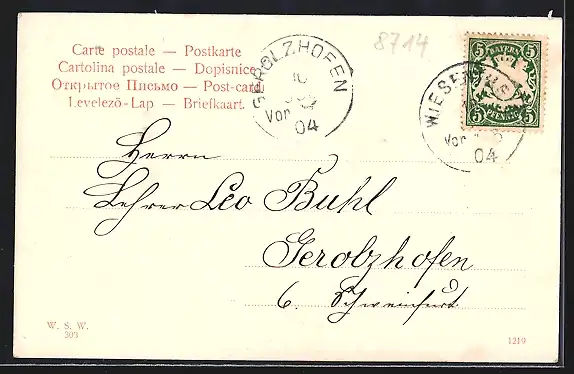 Carte postale — Postkarte
Cartolina postale — Dopisnice
Открытое Письмо — Post-card
Levelező-Lap — Briefkaart.
GEROLZHOFEN
Vor
04
8714
5 BAYERN 5
5 PFENNIG 5
WIESEN
Vor
04
Herrn
Lehrer Leo Buhl
Gerolzhofen
b. Schweinfurt
W. S. W.
303
1219